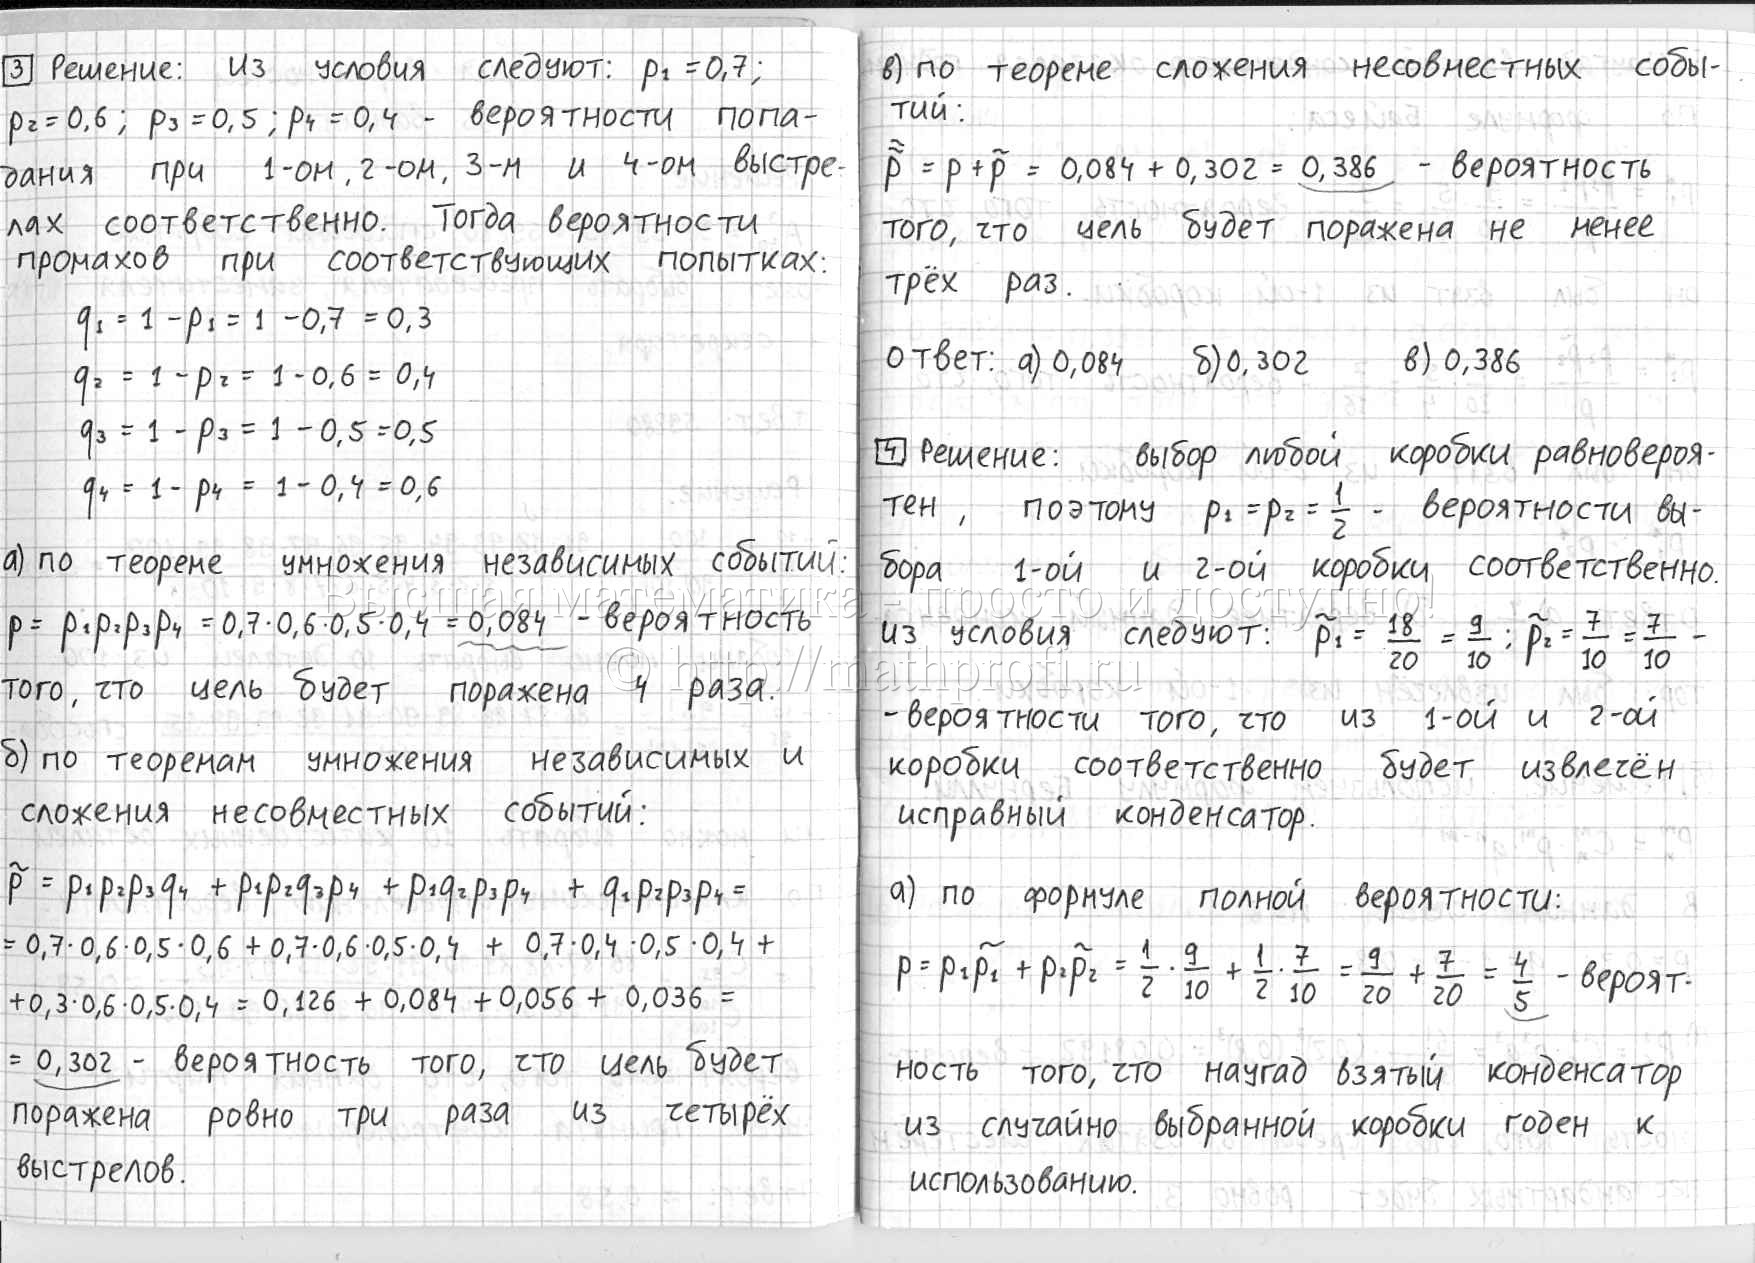 3 Решение: Из условия следуют: p₁ = 0,7;
p₂ = 0,6; p₃ = 0,5; p₄ = 0,4 - вероятности попа-
дания при 1-ом, 2-ом, 3-м и 4-ом выстре-
лах соответственно. Тогда вероятности
промахов при соответствующих попытках:
q₁ = 1 - p₁ = 1 - 0,7 = 0,3
q₂ = 1 - p₂ = 1 - 0,6 = 0,4
q₃ = 1 - p₃ = 1 - 0,5 = 0,5
q₄ = 1 - p₄ = 1 - 0,4 = 0,6
а) по теореме умножения независимых событий:
p = p₁p₂p₃p₄ = 0,7·0,6·0,5·0,4 = 0,084 - вероятность
того, что цель будет поражена 4 раза.
б) по теоремам умножения независимых и
сложения несовместных событий:
p̃ = p₁p₂p₃q₄ + p₁p₂q₃p₄ + p₁q₂p₃p₄ + q₁p₂p₃p₄ =
= 0,7·0,6·0,5·0,6 + 0,7·0,6·0,5·0,4 + 0,7·0,4·0,5·0,4 +
+ 0,3·0,6·0,5·0,4 = 0,126 + 0,084 + 0,056 + 0,036 =
= 0,302 - вероятность того, что цель будет
поражена ровно три раза из четырёх
выстрелов.
в) по теореме сложения несовместных собы-
тий:
p̃̃ = p + p̃ = 0,084 + 0,302 = 0,386 - вероятность
того, что цель будет поражена не менее
трёх раз.
Ответ: а) 0,084 б) 0,302 в) 0,386
4 Решение: выбор любой коробки равновероя-
тен, поэтому p₁ = p₂ = 1/2 - вероятности вы-
бора 1-ой и 2-ой коробки соответственно.
Из условия следуют: p̃₁ = 18/20 = 9/10; p̃₂ = 7/10 = 7/10 -
- вероятности того, что из 1-ой и 2-ой
коробки соответственно будет извлечён
исправный конденсатор.
а) по формуле полной вероятности:
p = p₁p̃₁ + p₂p̃₂ = 1/2 · 9/10 + 1/2 · 7/10 = 9/20 + 7/20 = 4/5 - вероят-
ность того, что наугад взятый конденсатор
из случайно выбранной коробки годен к
использованию.
Высшая математика - просто и доступно!
© http://mathprofi.ru